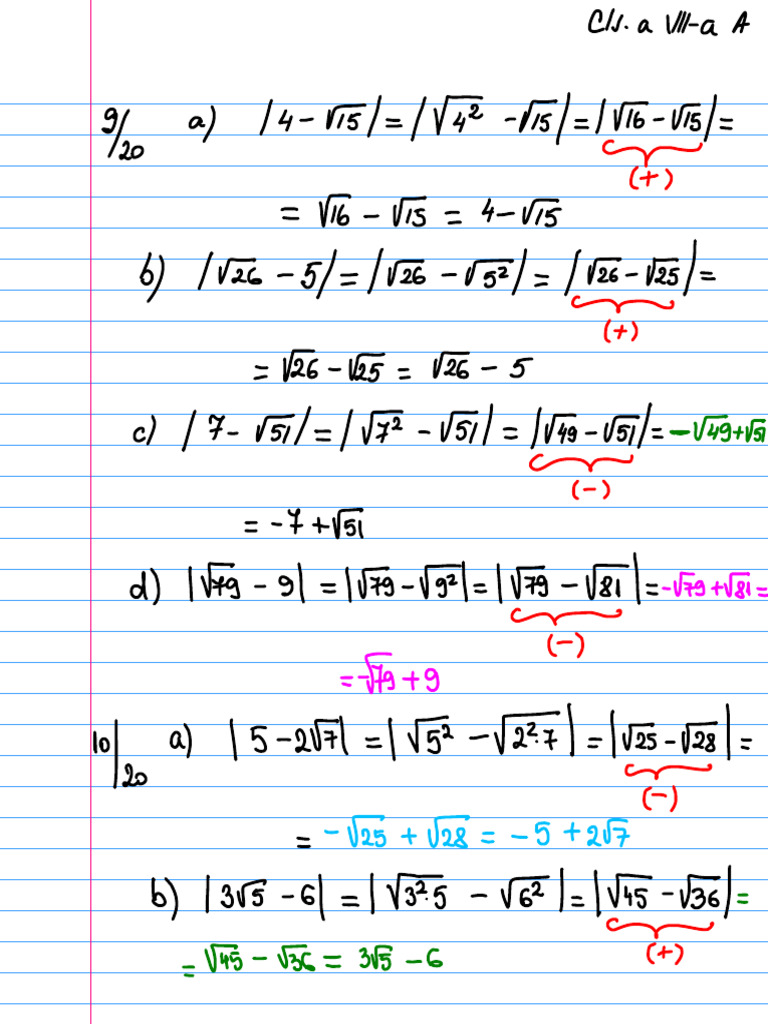 Cls. a VIII-a A
9/20 a) |4 - √15| = |√4² - √15| = |√16 - √15| =
(+)
= √16 - √15 = 4 - √15
b) |√26 - 5| = |√26 - √5²| = |√26 - √25| =
(+)
= √26 - √25 = √26 - 5
c) |7 - √51| = |√7² - √51| = |√49 - √51| = -√49 + √51
(-)
= -7 + √51
d) |√79 - 9| = |√79 - √9²| = |√79 - √81| = -√79 + √81 =
(-)
= -√79 + 9
10|20 a) |5 - 2√7| = |√5² - √2²·7| = |√25 - √28| =
(-)
= -√25 + √28 = -5 + 2√7
b) |3√5 - 6| = |√3²·5 - √6²| = |√45 - √36| =
(+)
= √45 - √36 = 3√5 - 6